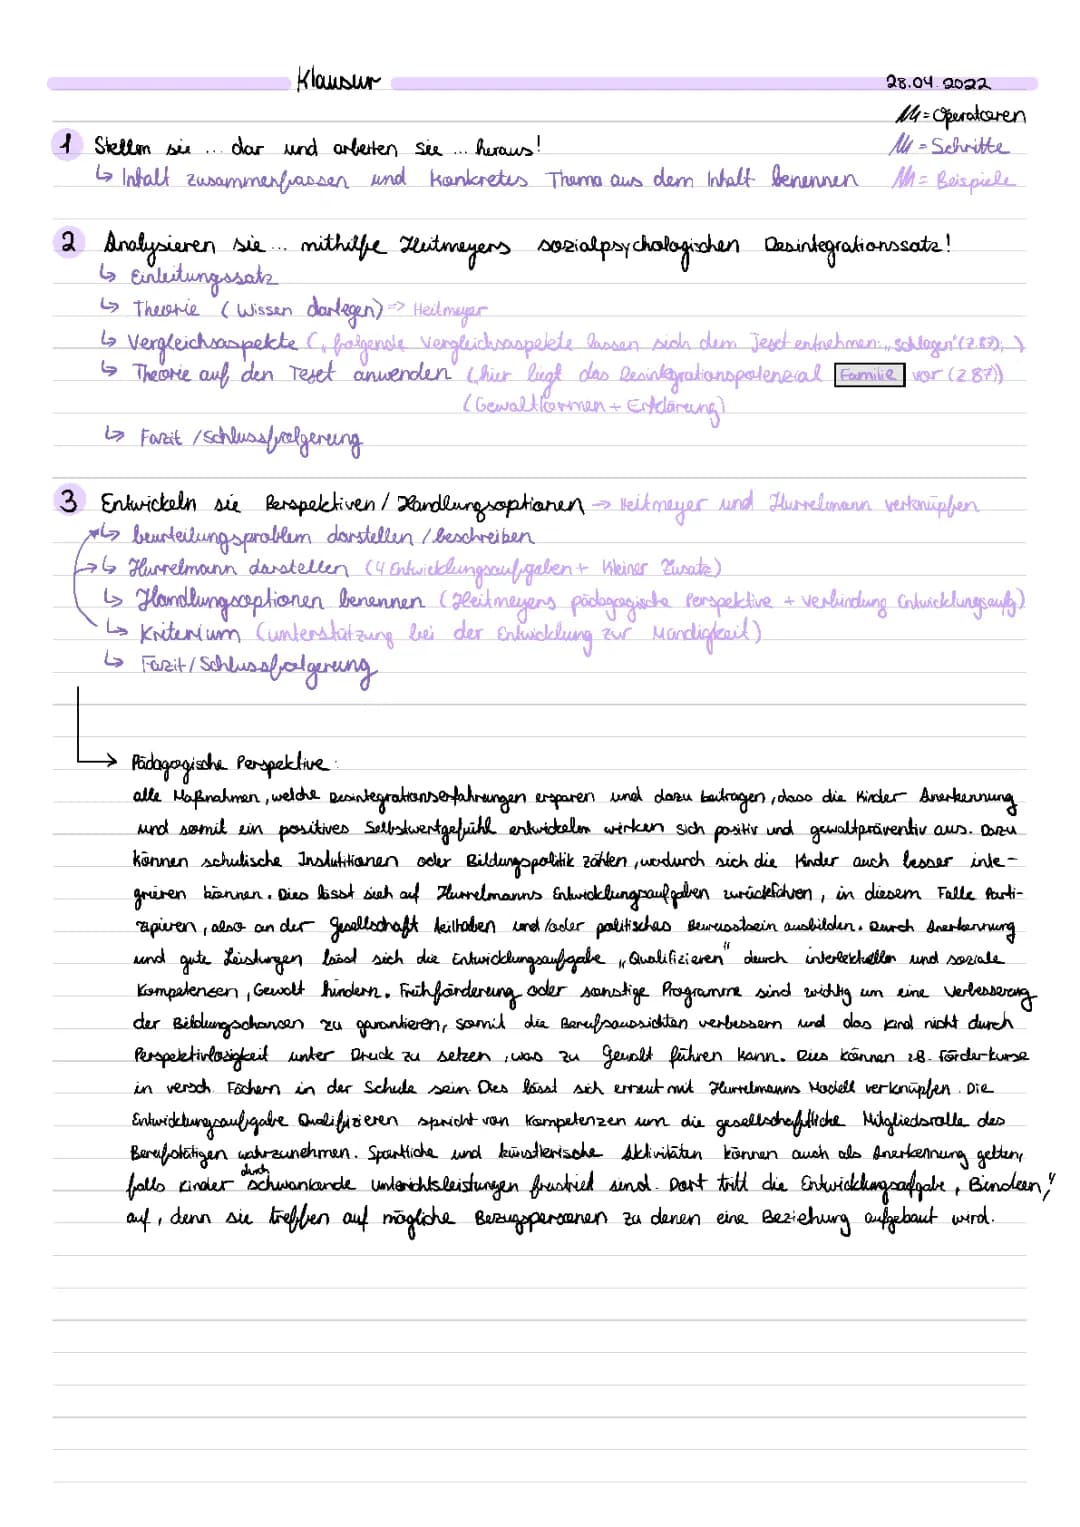 Klausur
28.04.2022
= Operatoren
1 Stellen sie ... dar und arbeiten sie ... heraus!
= Schritte
↳ Inhalt zusammenfassen und konkretes Thema aus dem Inhalt benennen
= Beispiele
2 Analysieren sie ... mithilfe Heitmeyers sozialpsychologischen Desintegrationssatz!
↳ Einleitungssatz
↳ Theorie (Wissen darlegen) => Heitmeyer
↳ Vergleichsaspekte („folgende Vergleichsaspekte lassen sich dem Text entnehmen: „schlagen" (Z.87); )
↳ Theorie auf den Text anwenden (hier liegt das Desintegrationspotenzial Familie vor (Z 87))
(Gewaltformen + Erklärung)
↳ Fazit / Schlussfolgerung
3 Entwickeln sie Perspektiven / Handlungsoptionen → Heitmeyer und Hurrelmann verknüpfen
↳ beurteilungsproblem darstellen / beschreiben
↳ Hurrelmann darstellen (4 Entwicklungsaufgaben + kleiner Zusatz)
↳ Handlungsoptionen benennen (Heitmeyers pädagogische Perspektive + verbindung Entwicklungsaufg)
↳ Kriterium (unterstützung bei der Entwicklung zur Mündigkeit)
↳ Fazit / Schlussfolgerung
→ Pädagogische Perspektive:
alle Maßnahmen, welche Desintegrationserfahrungen ersparen und dazu beitragen, dass die Kinder Anerkennung
und somit ein positives Selbstwertgefühl entwickeln wirken sich positiv und gewaltpräventiv aus. Dazu
können schulische Institutionen oder Bildungspolitik zählen, wodurch sich die Kinder auch besser inte-
grieren können. Dies lässt sich auf Hurrelmanns Entwicklungsaufgaben zurückführen, in diesem Falle Parti-
zipieren, also an der Gesellschaft teilhaben und/oder politisches Bewusstsein ausbilden. Durch Anerkennung
und gute Leistungen lässt sich die Entwicklungsaufgabe „Qualifizieren" durch intellektuellen und soziale
Kompetenzen, Gewalt hindern. Frühförderung oder sonstige Programme sind wichtig um eine Verbesserung
der Bildungschancen zu garantieren, somit die Berufsaussichten verbessern und das Kind nicht durch
Perspektivlosigkeit unter Druck zu setzen, was zu Gewalt führen kann. Dies können z.B. Förderkurse
in versch. Fächern in der Schule sein. Dies lässt sich erneut mit Hurrelmanns Modell verknüpfen. Die
Entwicklungsaufgabe Qualifizieren spricht von Kompetenzen um die gesellschaftliche Mitgliedsrolle des
Berufstätigen wahrzunehmen. Sportliche und künstlerische Aktivitäten können auch als Anerkennung gelten,
falls Kinder durch schwankende Unterrichtsleistungen frustriert sind. Dort tritt die Entwicklungsaufgabe „Binden"
auf, denn sie treffen auf mögliche Bezugspersonen zu denen eine Beziehung aufgebaut wird.